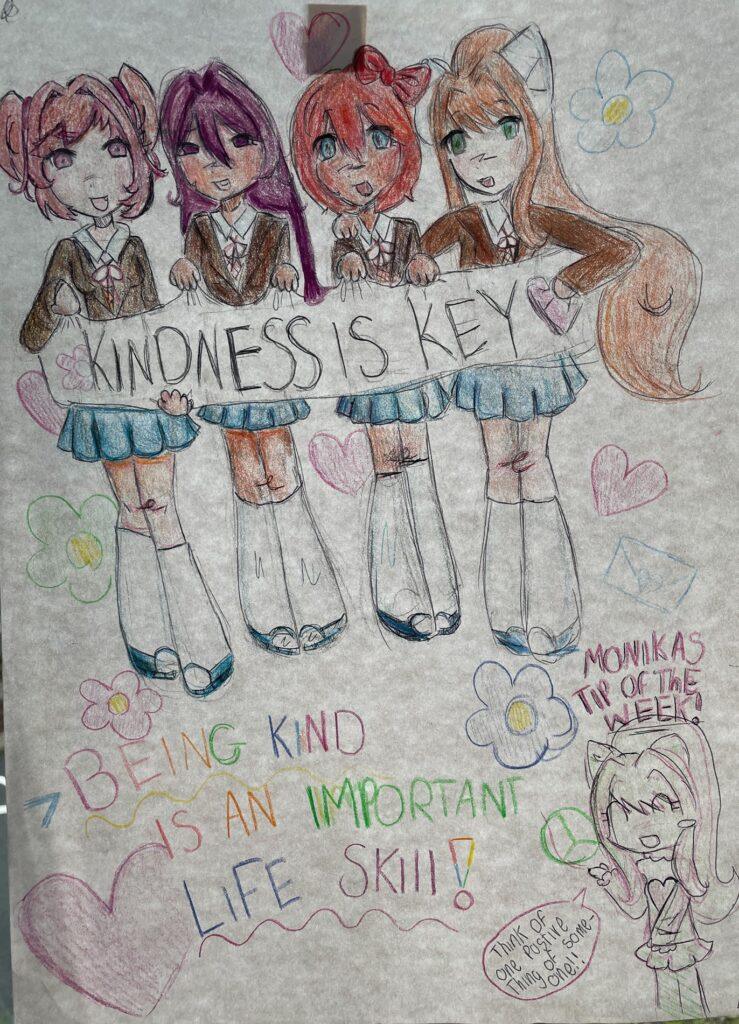 KINDNESS IS KEY
MONIKAS
TIP OF THE
WEEK!
BEING KIND
IS AN IMPORTANT
LIFE SKIll!
Think of
one Positive
Thing of some-
one!!